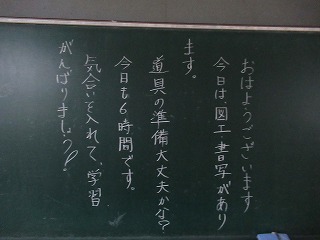 おはようございます
今日は、図工、書写があり
ます。
道具の準備大丈夫かな?
今日も6時間です。
気合いを入れて、学習
がんばりましょう。